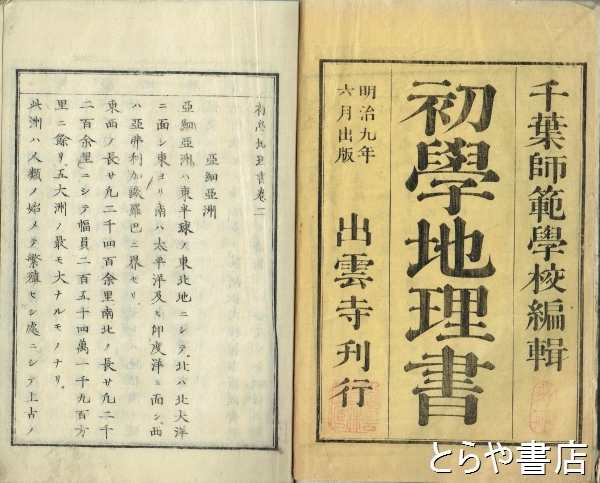 千葉師範學校編輯
初學地理書
明治九年
六月出版
出雲寺刊行
初學地理書卷二
亞細亞洲
亞細亞洲ハ東半球ノ東北地ニシテ北ハ北大洋
ニ面シ東ヨリ南ハ太平洋及ヒ印度洋ニ面シ西
ハ亞弗利加歐羅巴ニ界セリ
東西ノ長サ凡二千四百余里南北ノ長サ凡二千
二百余里ニシテ幅員二百五十四萬一千九百方
里ニ餘リ五大洲ノ最モ大ナルモノナリ
此洲ハ人類ノ始メテ繁殖セシ處ニシテ上古ノ
とらや書店